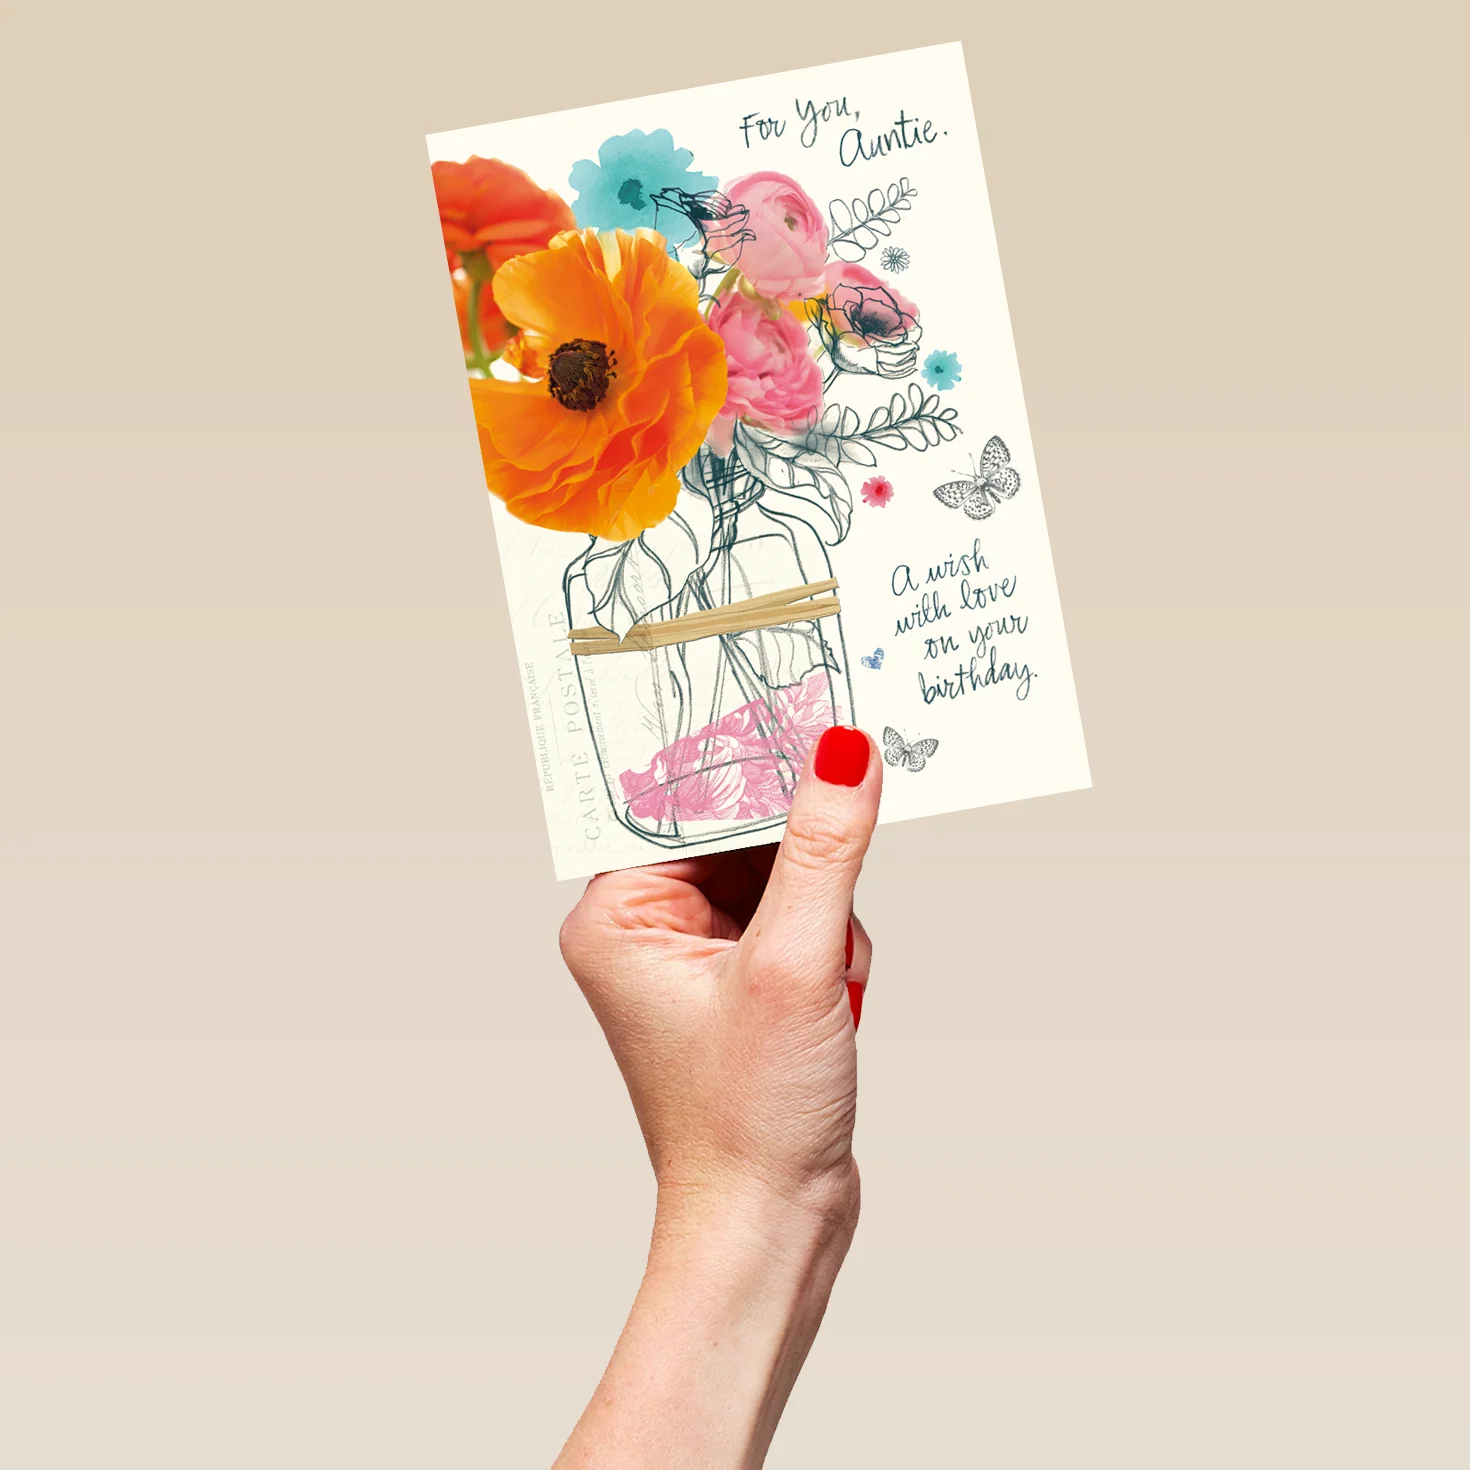 For You,
Auntie.
A wish
with love
on your
birthday.
RÉPUBLIQUE FRANÇAISE
CARTE POSTALE